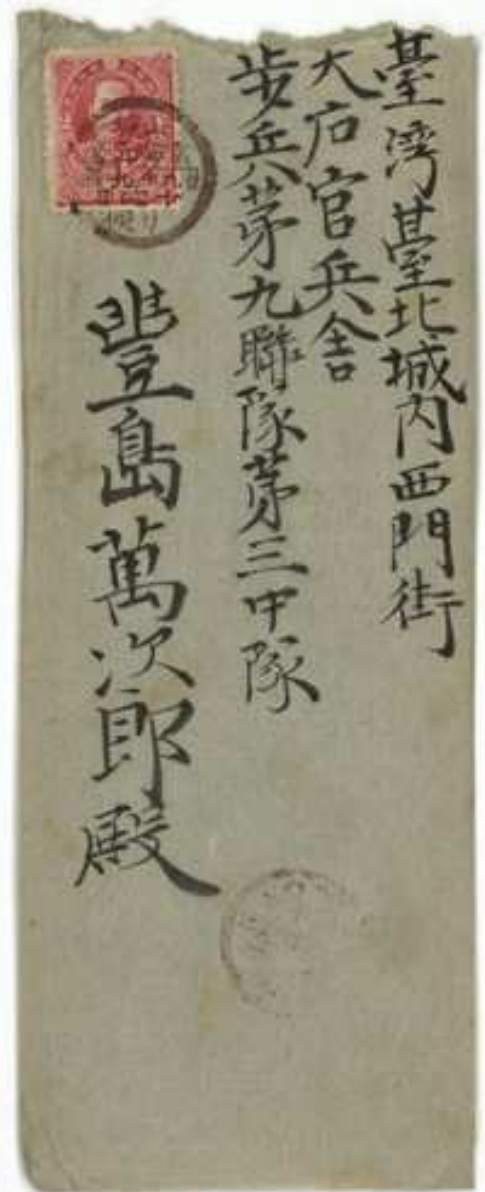 臺灣臺北城內西門街
大后官兵舎
步兵第九聯隊第三中隊
豐島萬次郎殿